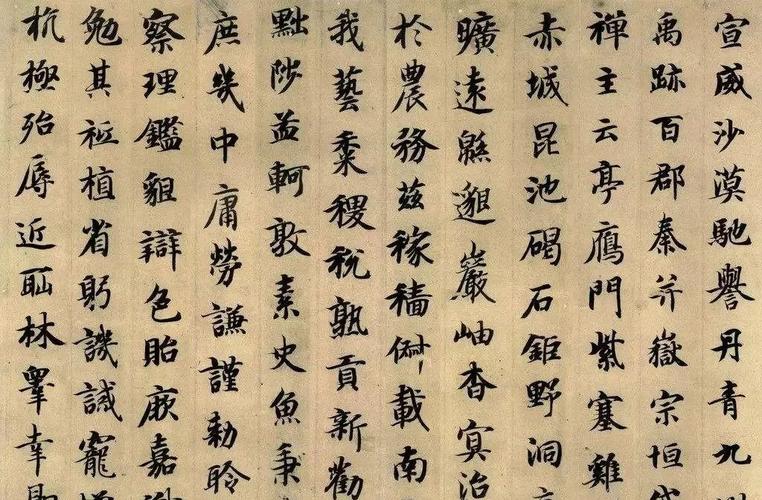 宣威沙漠馳譽丹青九
禹跡百郡秦并嶽宗恒
禪主云亭鴈門紫塞雞
赤城昆池碣石鉅野洞
曠遠緜邈巖岫杳冥治
於農務茲稼穡俶載南
我藝黍稷稅熟貢新勸
黜陟孟軻敦素史魚秉
庶幾中庸勞謙謹勅聆
察理鑑貌辯色貽厥嘉
勉其祗植省躬譏誡寵
抗極殆辱近恥林皋幸即